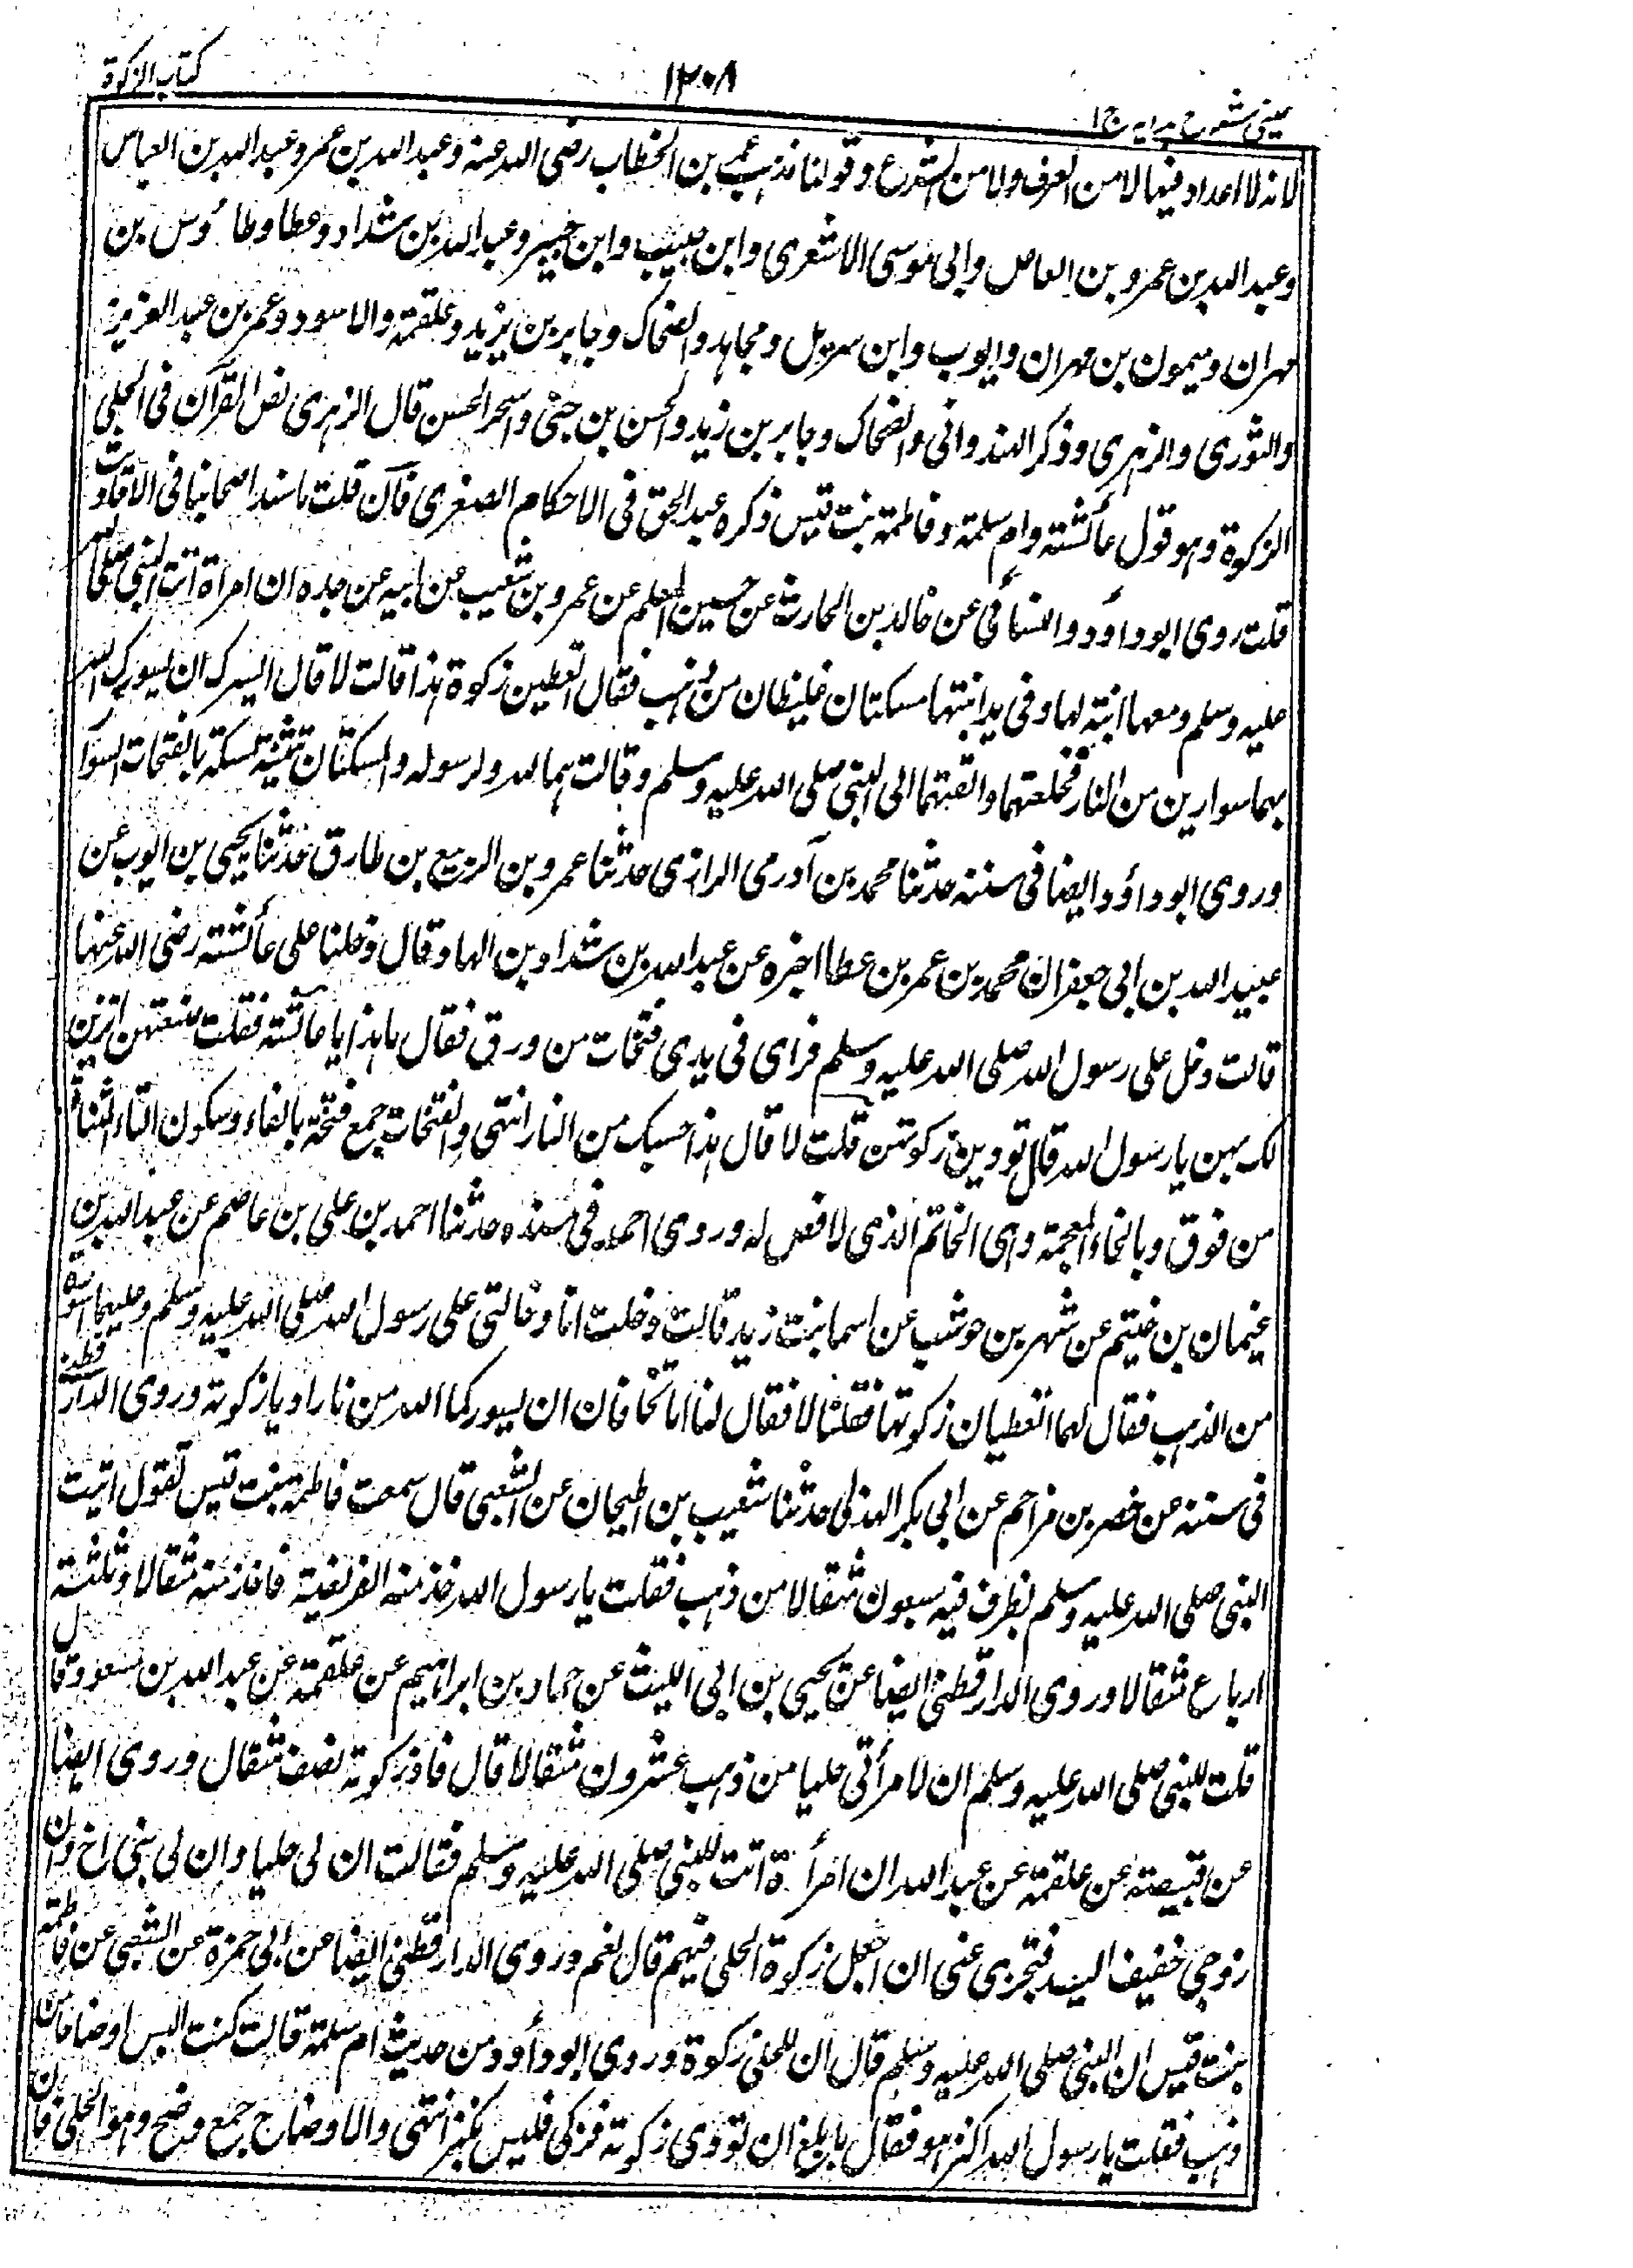 عینی شرح ہدایہ ج ١
١٣٠٨
کتاب الزکوة
لانه لا اعداد فیها لا من العرف ولا من الشرع وقولنا مذہب عمر بن الخطاب رضی الله عنه وعبد الله بن عمر وعبد الله بن العباس
وعبد الله بن عمرو بن العاص وابی موسی الاشعری وابن مسیب وابن جبیر وعبد الله بن شداد وعطا وطاؤس بن
مہران ومیمون بن مہران وایوب وابن ومجاہد والضحاک وجابر بن یزید وعلقمة والاسود وعمر بن عبد العزیز
والثوری والزہری وذکر الہندوانی والضحاک وجابر بن زید والحسن بن الحسن قال الزہری نص القرآن فی الحلی
الزکوة وہو قول عائشة وام سلمة وفاطمة بنت قیس ذکره عبد الحق فی الاحکام الصغری فان قلت ما سند اصحابنا فی الاحادیث
قلت روی ابو داؤد والنسائی عن خالد بن الحارث عن حسین المعلم عن عمرو بن شعیب عن ابیه عن جده ان امرأة اتت النبی صلی الله
علیه وسلم ومعها ابنة لها وفی ید ابنتها مسکتان غلیظان من ذہب فقال اتعطین زکوة ہذا قالت لا قال ایسرک ان یسورک الله
بهما سوارین من النار فخلعتهما والقتهما الی النبی صلی الله علیه وسلم وقالت ہما لله ولرسوله والمسکتان تثنیة مسکة بالفتحات السوار
وروی ابو داؤد ایضا فی سننه حدثنا محمد بن آدرمی الرازی حدثنا عمرو بن الربیع بن طارق حدثنا یحیی بن ایوب عن
عبید الله بن ابی جعفر ان محمد بن عمر بن عطا اخبره عن عبد الله بن شداد بن الهاد قال دخلنا علی عائشة رضی الله عنها
قالت دخل علی رسول الله صلی الله علیه وسلم فرای فی یدی فتخات من ورق فقال ما ہذا یا عائشة فقلت صنعتهن اتزین
لک بهن یا رسول الله قال تودین زکوتهن قلت لا قال ہذا حسبک من النار انتهی والفتخات جمع فتخة بالفاء وسکون التاء المثناة
من فوق وبالخاء المعجمة وہی الخاتم الذی لا فص له وروی احمد فی مسنده حدثنا احمد بن علی بن عاصم عن عبد الله بن
عثمان بن خیثم عن شہر بن حوشب عن اسما بنت زید قالت دخلت انا وخالتی علی رسول الله صلی الله علیه وسلم وعلیها اسورة
من الذہب فقال لهما اتعطیان زکوتها فقلنا لا فقال لنا اما تخافان ان یسورکما الله من نار ادیا زکوته وروی الدارقطنی
فی سننه عن نصر بن مزاحم عن ابی بکر الهذلی حدثنا شعیب بن الحبحاب عن الشعبی قال سمعت فاطمة بنت قیس تقول اتیت
النبی صلی الله علیه وسلم بطرف فیه سبعون مثقالا من ذہب فقلت یا رسول الله خذ منه الفریضة فاخذ منه مثقالا وثلثة
ارباع مثقالا وروی الدارقطنی ایضا عن یحیی بن ابی اللیث عن حماد بن ابراہیم عن علقمة عن عبد الله بن مسعود قال
قلت للنبی صلی الله علیه وسلم ان لامرأتی حلیا من ذہب عشرون مثقالا قال فاد زکوته نصف مثقال وروی ایضا
عن قبیصة عن علقمة عن عبد الله ان امرأة اتت النبی صلی الله علیه وسلم فقالت ان لی حلیا وان لی بنی اخ وان
زوجی خفیف الید فتجزی عنی ان اجعل زکوة الحلی فیهم قال نعم وروی الدارقطنی ایضا عن ابی حمزة عن الشعبی عن فاطمة
بنت قیس ان النبی صلی الله علیه وسلم قال ان للحلی زکوة وروی ابو داؤد من حدیث ام سلمة قالت کنت البس اوضاحا من
ذہب فقلت یا رسول الله اکنز ہو فقال ما بلغ ان تودی زکوته فزکی فلیس بکنز انتهی والاوضاح جمع وضح وہو الحلی فان